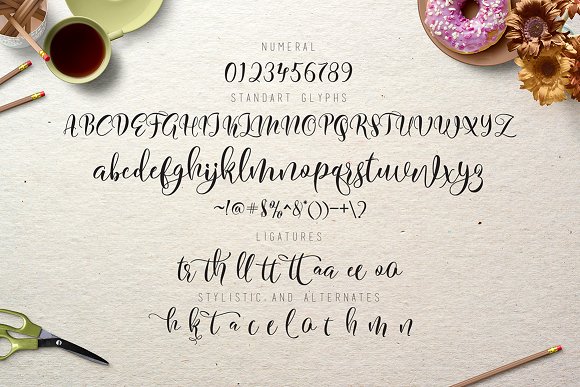 NUMERAL
0123456789
STANDART GLYPHS
ABCDEFGHIJKLMNOPQRSTUVWXYZ
abcdefghijklmnopqrstuvwxyz
~!@#$%^&*())-+\?
LIGATURES
tr th ll tt tt aa ee oo
STYLISTIC AND ALTERNATES
h k t a c e l a t h m n